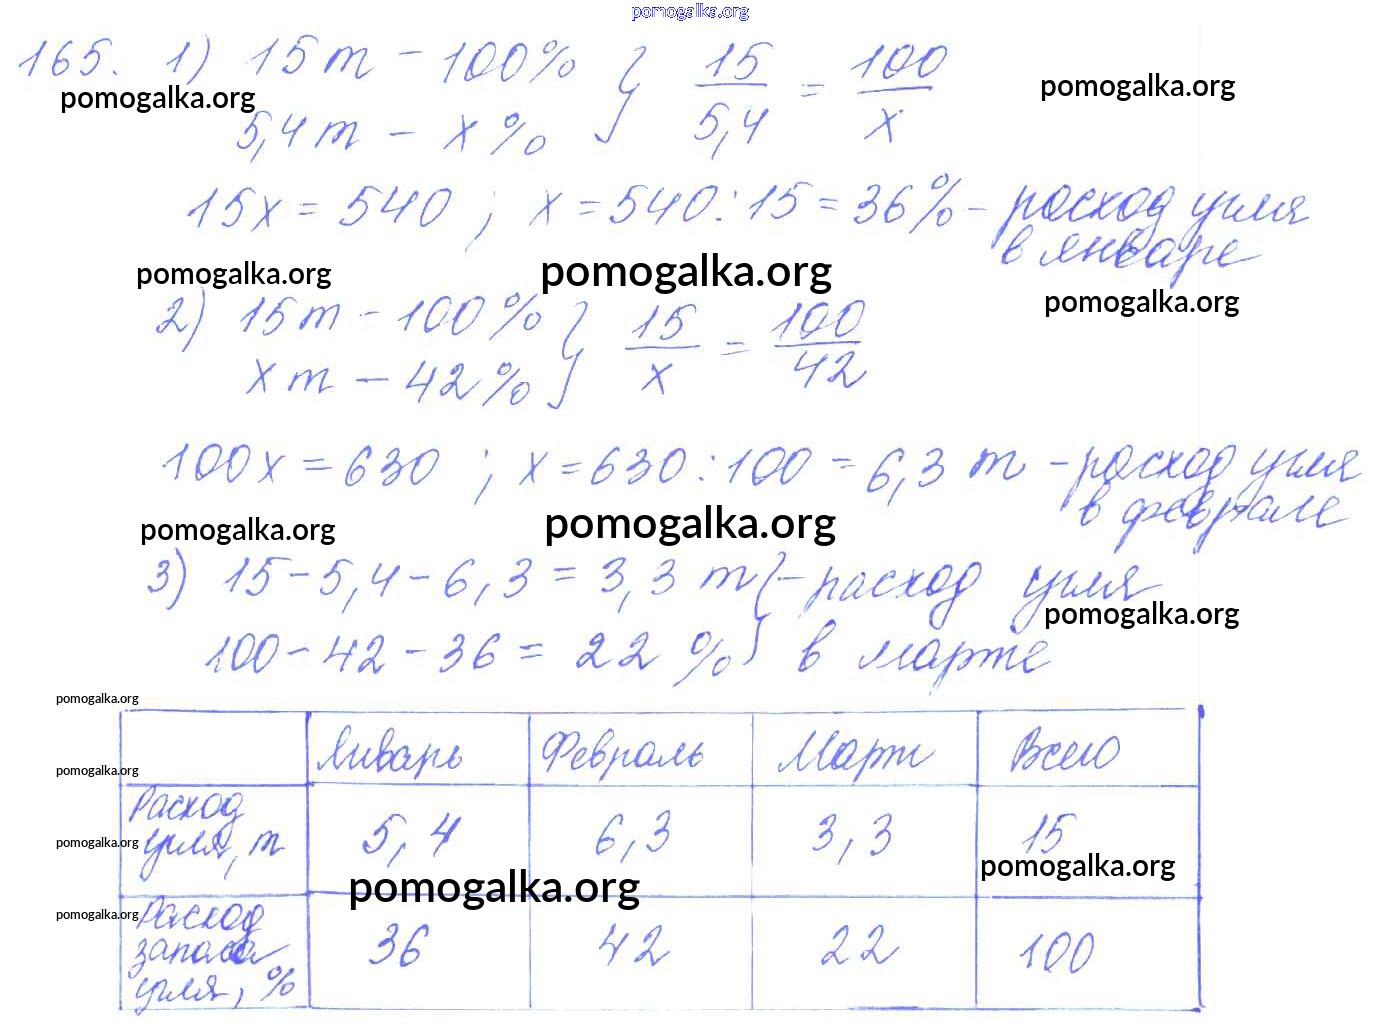 pomogalka.org
165. 1) 15 т - 100% } 15/5,4 = 100/x
pomogalka.org pomogalka.org
5,4 т - x %
15x = 540 ; x = 540 : 15 = 36% - расход угля
в январе
pomogalka.org pomogalka.org
pomogalka.org
2) 15 т - 100% } 15/x = 100/42
x т - 42 %
100x = 630 ; x = 630 : 100 = 6,3 т - расход угля
в феврале
pomogalka.org pomogalka.org
3) 15 - 5,4 - 6,3 = 3,3 т } - расход угля
pomogalka.org
100 - 42 - 36 = 22 % в марте
pomogalka.org
Январь Февраль Март Всего
pomogalka.org
Расход
угля, т 5,4 6,3 3,3 15
pomogalka.org
pomogalka.org pomogalka.org
pomogalka.org
Расход
запаса
угля, % 36 42 22 100